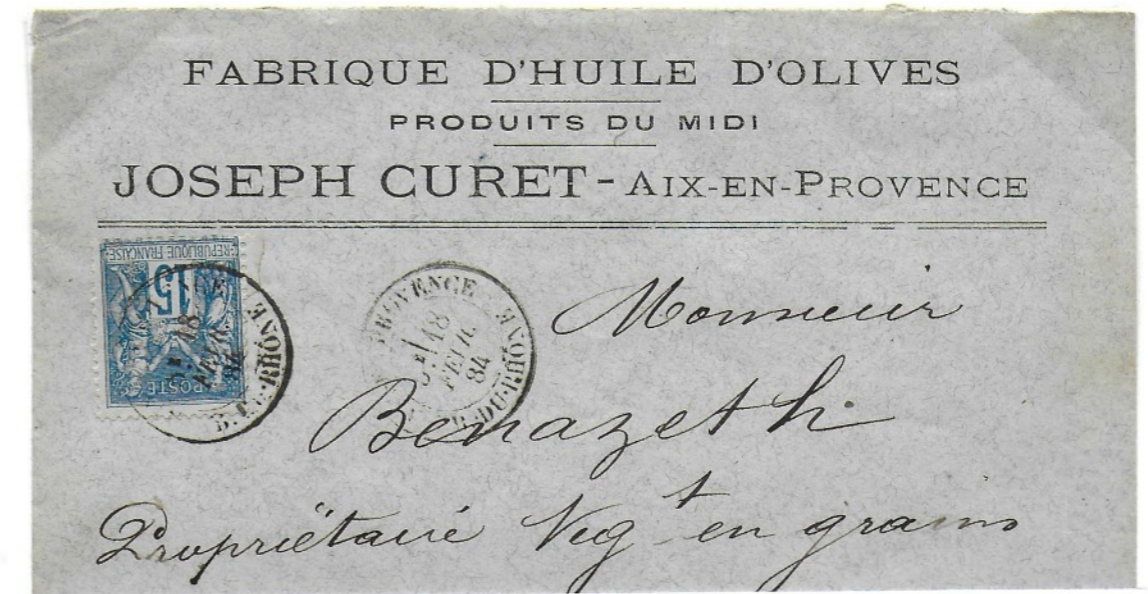 FABRIQUE D'HUILE D'OLIVES
PRODUITS DU MIDI
JOSEPH CURET - AIX-EN-PROVENCE
REPUBLIQUE FRANÇAISE
15
POSTES
18
FEVR.
84
B.-DU-RHÔNE
PROVENCE
18
FEVR.
84
B.-DU-RHÔNE
Monsieur
Benazeth
Propriétaire Négt en grains